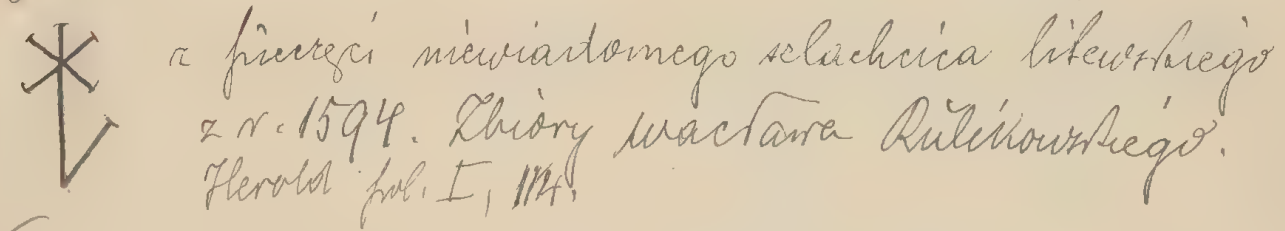 z pieczęci niewiadomego szlachcica litewskiego
z r. 1594. Zbiory Wacława Rulikowskiego.
Herold pol. I, 114.